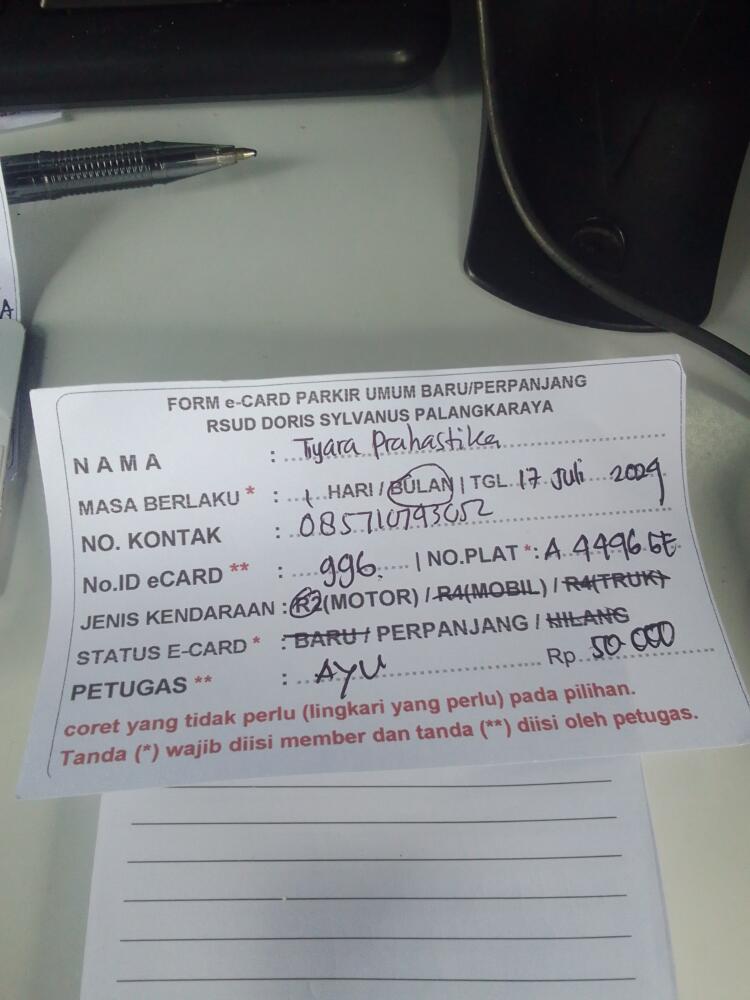 FORM e-CARD PARKIR UMUM BARU/PERPANJANG
RSUD DORIS SYLVANUS PALANGKARAYA
N A M A : Tyara Prahastika
MASA BERLAKU * : 1 HARI / BULAN | TGL 17 Juli 2024
NO. KONTAK : 085710793052
No.ID eCARD ** : 996. | NO.PLAT *: A 4496 GE
JENIS KENDARAAN : R2(MOTOR) / R4(MOBIL) / R4(TRUK)
STATUS E-CARD * : BARU / PERPANJANG / HILANG
PETUGAS ** : AYU Rp 50.000
coret yang tidak perlu (lingkari yang perlu) pada pilihan.
Tanda (*) wajib diisi member dan tanda (**) diisi oleh petugas.
A